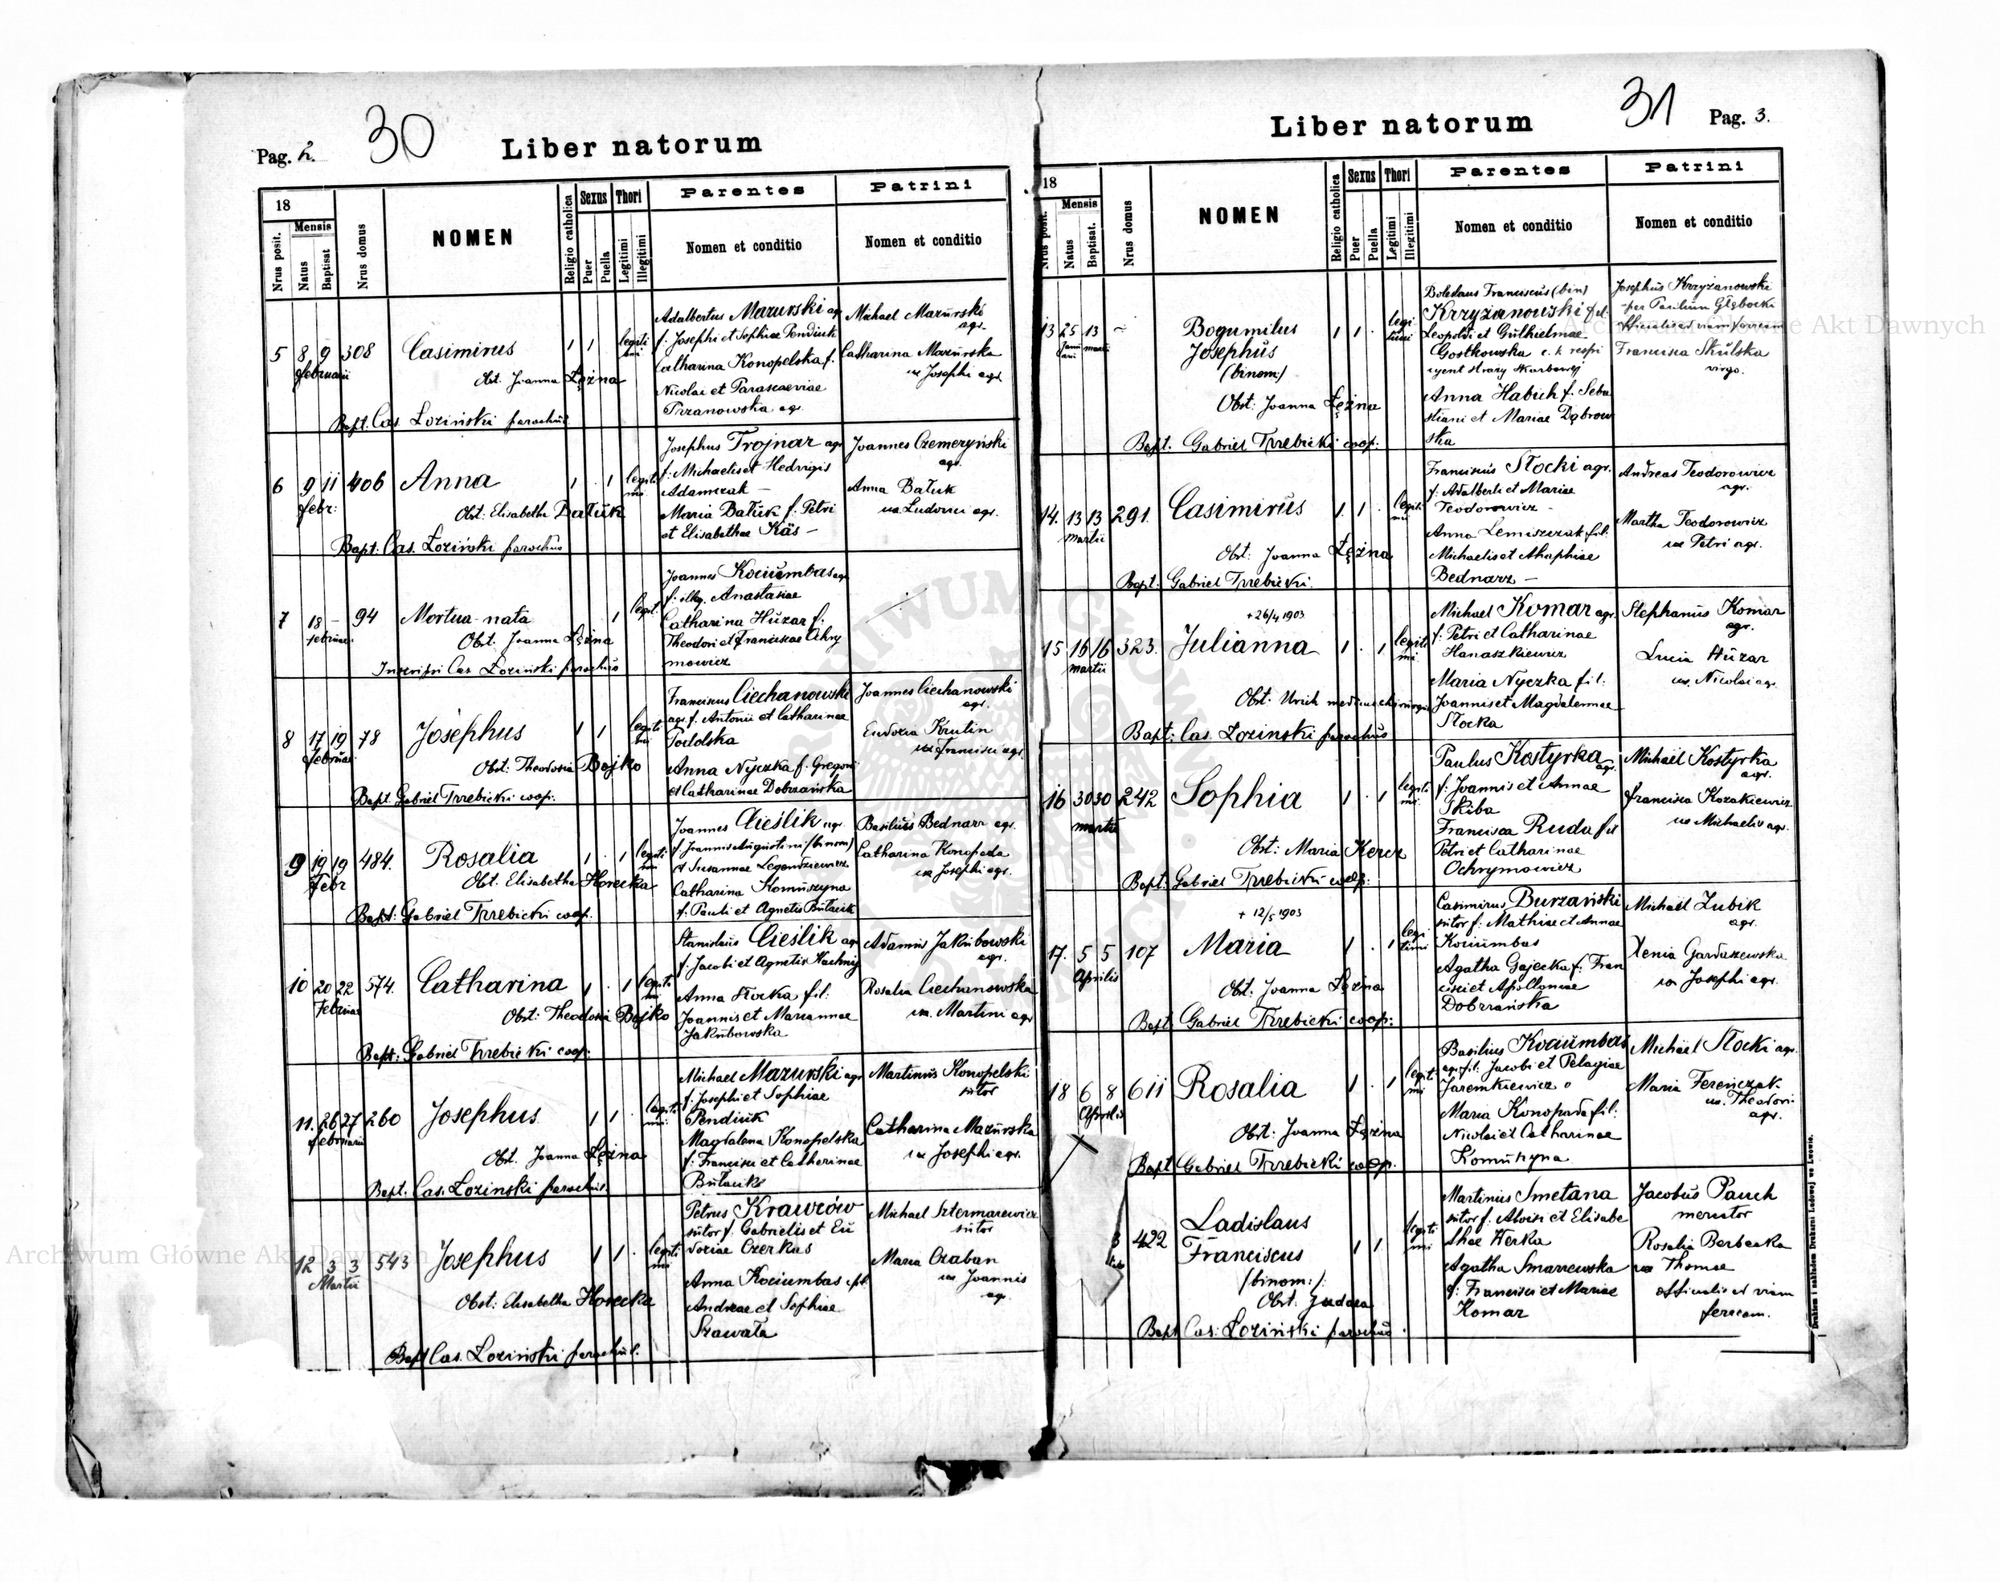 Pag. 2.
30
Liber natorum
18
Nrus posit.
Mensis
Natus
Baptisat
Nrus domus
NOMEN
Religio catholica
Sexus
Puer
Puella
Thori
Legitimi
Illegitimi
Parentes
Nomen et conditio
Patrini
Nomen et conditio
5 8 9 308 Casimirus 1 1 legiti
Februarii mi
Obst. Joanna Łężna
Bapt. Cas. Łoziński parochus
Adalbertus Mazurski agr.
f. Josephi et Sophiae Pendiuk
Catharina Konopelska f.
Nicolai et Parasceviae
Trzanowska agr.
Michael Mazurski
agr.
Catharina Mazurska
ux Josephi agr.
6 9 11 406 Anna 1 . 1 legiti
Febr: mi
Obst: Elisabetha Batiuk
Bapt. Cas. Łoziński parochus
Josephus Trojnar agr
f. Michaelis et Hedvigis
Adamczak —
Maria Batiuk f. Petri
et Elisabethae Käs —
Joannes Czemeryński
agr.
Anna Batiuk
ux Ludovici agr.
7 18 – 94 Mortua nata 1 legit.
Februar.
Obst. Joanna Łężna
Inscripsi Cas. Łoziński parochus
Joannes Kociumbas agr
f. illeg. Anastasiae
Catharina Huzar f.
Theodori et Franciscae Ochry
mowicz
8 17 19 78 Josephus 1 1 legiti
Februar. mi
Obst: Theodosia Bojko
Bapt Gabriel Trzebicki coop.
Franciscus Ciechanowski
agr. f. Antonii et Catharinae
Podolska
Anna Nyczka f. Gregorii
et Catharinae Dobrzańska
Joannes Ciechanowski
agr.
Eudoxia Krutin
ux Francisci agr
9 19 19 484. Rosalia 1 . 1 legiti
Febr mi
Obst. Elisabetha Horecka
Bapt: Gabriel Trzebicki coop.
Joannes Cieślik agr.
f. Joannis Augustini (binom)
et Susannae Legendziewicz
Catharina Komuszyna
f. Pauli et Agnetis Butacik
Basilius Bednarz agr.
Catharina Konopada
ux Josephi agr.
10 20 22 574. Catharina 1 . 1 legiti
Februar mi
Obst: Theodosia Bojko
Bapt: Gabriel Trzebicki coop:
Stanislaus Cieślik agr
f. Jacobi et Agnetis Kachnij
Anna Stocka fil:
Joannis et Mariannae
Jakubowska
Adamus Jakubowski
agr.
Rosalia Ciechanowska
ux. Martini agr
11. 26 27 260 Josephus 1 1 legiti
Februarii mi
Obst. Joanna Łężna
Bapt. Cas. Łoziński parochus.
Michael Mazurski agr
f. Josephi et Sophiae
Pendiuk
Magdalena Konopelska
f. Francisci et Catharinae
Butacik
Martinus Konopelski
sutor
Catharina Mazurska
ux Josephi agr.
12 3 3 543 Josephus 1 1 legiti
Martii mi
Obst: Elisabetha Horecka
Bapt Cas. Łoziński parochus.
Petrus Krawców
sutor f. Gabrielis et Eu
doxiae Czerkas
Anna Kociumbas fil.
Andreae et Sophiae
Szawała
Michael Sztermarewicz
sutor
Maria Czaban
ux Joannis
agr.
31
Pag. 3.
Liber natorum
18
Nrus posit.
Mensis
Natus
Baptisat.
Nrus domus
NOMEN
Religio catholica
Sexus
Puer
Puella
Thori
Legitimi
Illegitimi
Parentes
Nomen et conditio
Patrini
Nomen et conditio
13 25 13 – Bogumilus 1 1 . legi
Josephus timi
(binom:)
Obst: Joanna Łężna
Bapt. Gabriel Trzebicki coop:
Boleslaus Franciscus (bin)
Krzyżanowski fil.
Leopoldi et Guilhielmae
Gostkowska c. k. respi
cyent straży skarbowej
Anna Habich f. Seba
stiani et Mariae Dąbrow
ska
Josephus Krzyżanowski
per Paulum Głębocki
Francisca Skulska
virgo.
14. 13 13 291. Casimirus 1 1 . legiti
Martii mi
Obst. Joanna Łężna
Bapt: Gabriel Trzebicki.
Franciscus Stocki agr.
f. Adalberti et Mariae
Teodorowicz —
Anna Lemiszczak fil.
Michaelis et Ahaphiae
Bednarz —
Andreas Teodorowicz
agr.
Martha Teodorowicz
ux Petri agr.
+ 26/4 1903
15 16 16 323. Julianna 1 . 1 legiti
Martii mi
Obst. Urich medicus chirurgus
Bapt: Cas. Łoziński parochus
Michael Komar agr
f. Petri et Catharinae
Hanaszkiewicz
Maria Nyczka fil:
Joannis et Magdalenae
Stocka
Stephanus Komar
agr.
Lucia Huzar
ux. Nicolai agr.
16 30 30 242 Sophia 1 . 1 legiti
Martii mi
Obst: Maria Kercz
Bapt: Gabriel Trzebicki coop:
Paulus Kostyrka agr.
f. Joannis et Annae
Skiba
Francisca Ruda fil
Petri et Catharinae
Ochrymowicz
Michael Kostyrka
agr.
Francisca Kozakiewicz
ux Michaelis agr.
+ 12/5 1903
17. 5 5 107 Maria 1 . 1 legi
Aprilis timi
Obst: Joanna Łężna
Bapt Gabriel Trzebicki coop:
Casimirus Burzański
sutor f. Mathiae et Annae
Kociumbas
Agatha Gajecka f. Fran
cisci et Apolloniae
Dobrzańska
Michael Zubik
agr.
Xenia Gardaszewska
ux Josephi agr.
18 6 8 611 Rosalia 1 . 1 legiti
Aprilis mi
Obst: Joanna Łężna
Bapt Gabriel Trzebicki coop.
Basilius Kociumbas
agr fil. Jacobi et Pelagiae
Jaremkiewicz
Maria Konopada fil.
Nicolai et Catharinae
Komuszyna
Michael Stocki agr.
Maria Ferenczak
ux. Theodori
agr.
422 Ladislaus
Franciscus 1 1 legiti
(binom:) mi
Obst. Gudara
Bapt Cas: Łoziński parochus.
Martinus Smetana
sutor f. Aloisi et Elisabe
thae Werka
Agatha Smarzewska
f. Francisci et Mariae
Komar
Jacobus Pauch
mercator
Rosalia Berbecka
ux Thomae
officialis ad viam
ferream.
Drukiem i nakładem Drukarni Ludowej we Lwowie.
Archiwum Główne Akt Dawnych
Archiwum Główne Akt Dawnych
ARCHIWUM GŁÓWNE AKT DAWNYCH